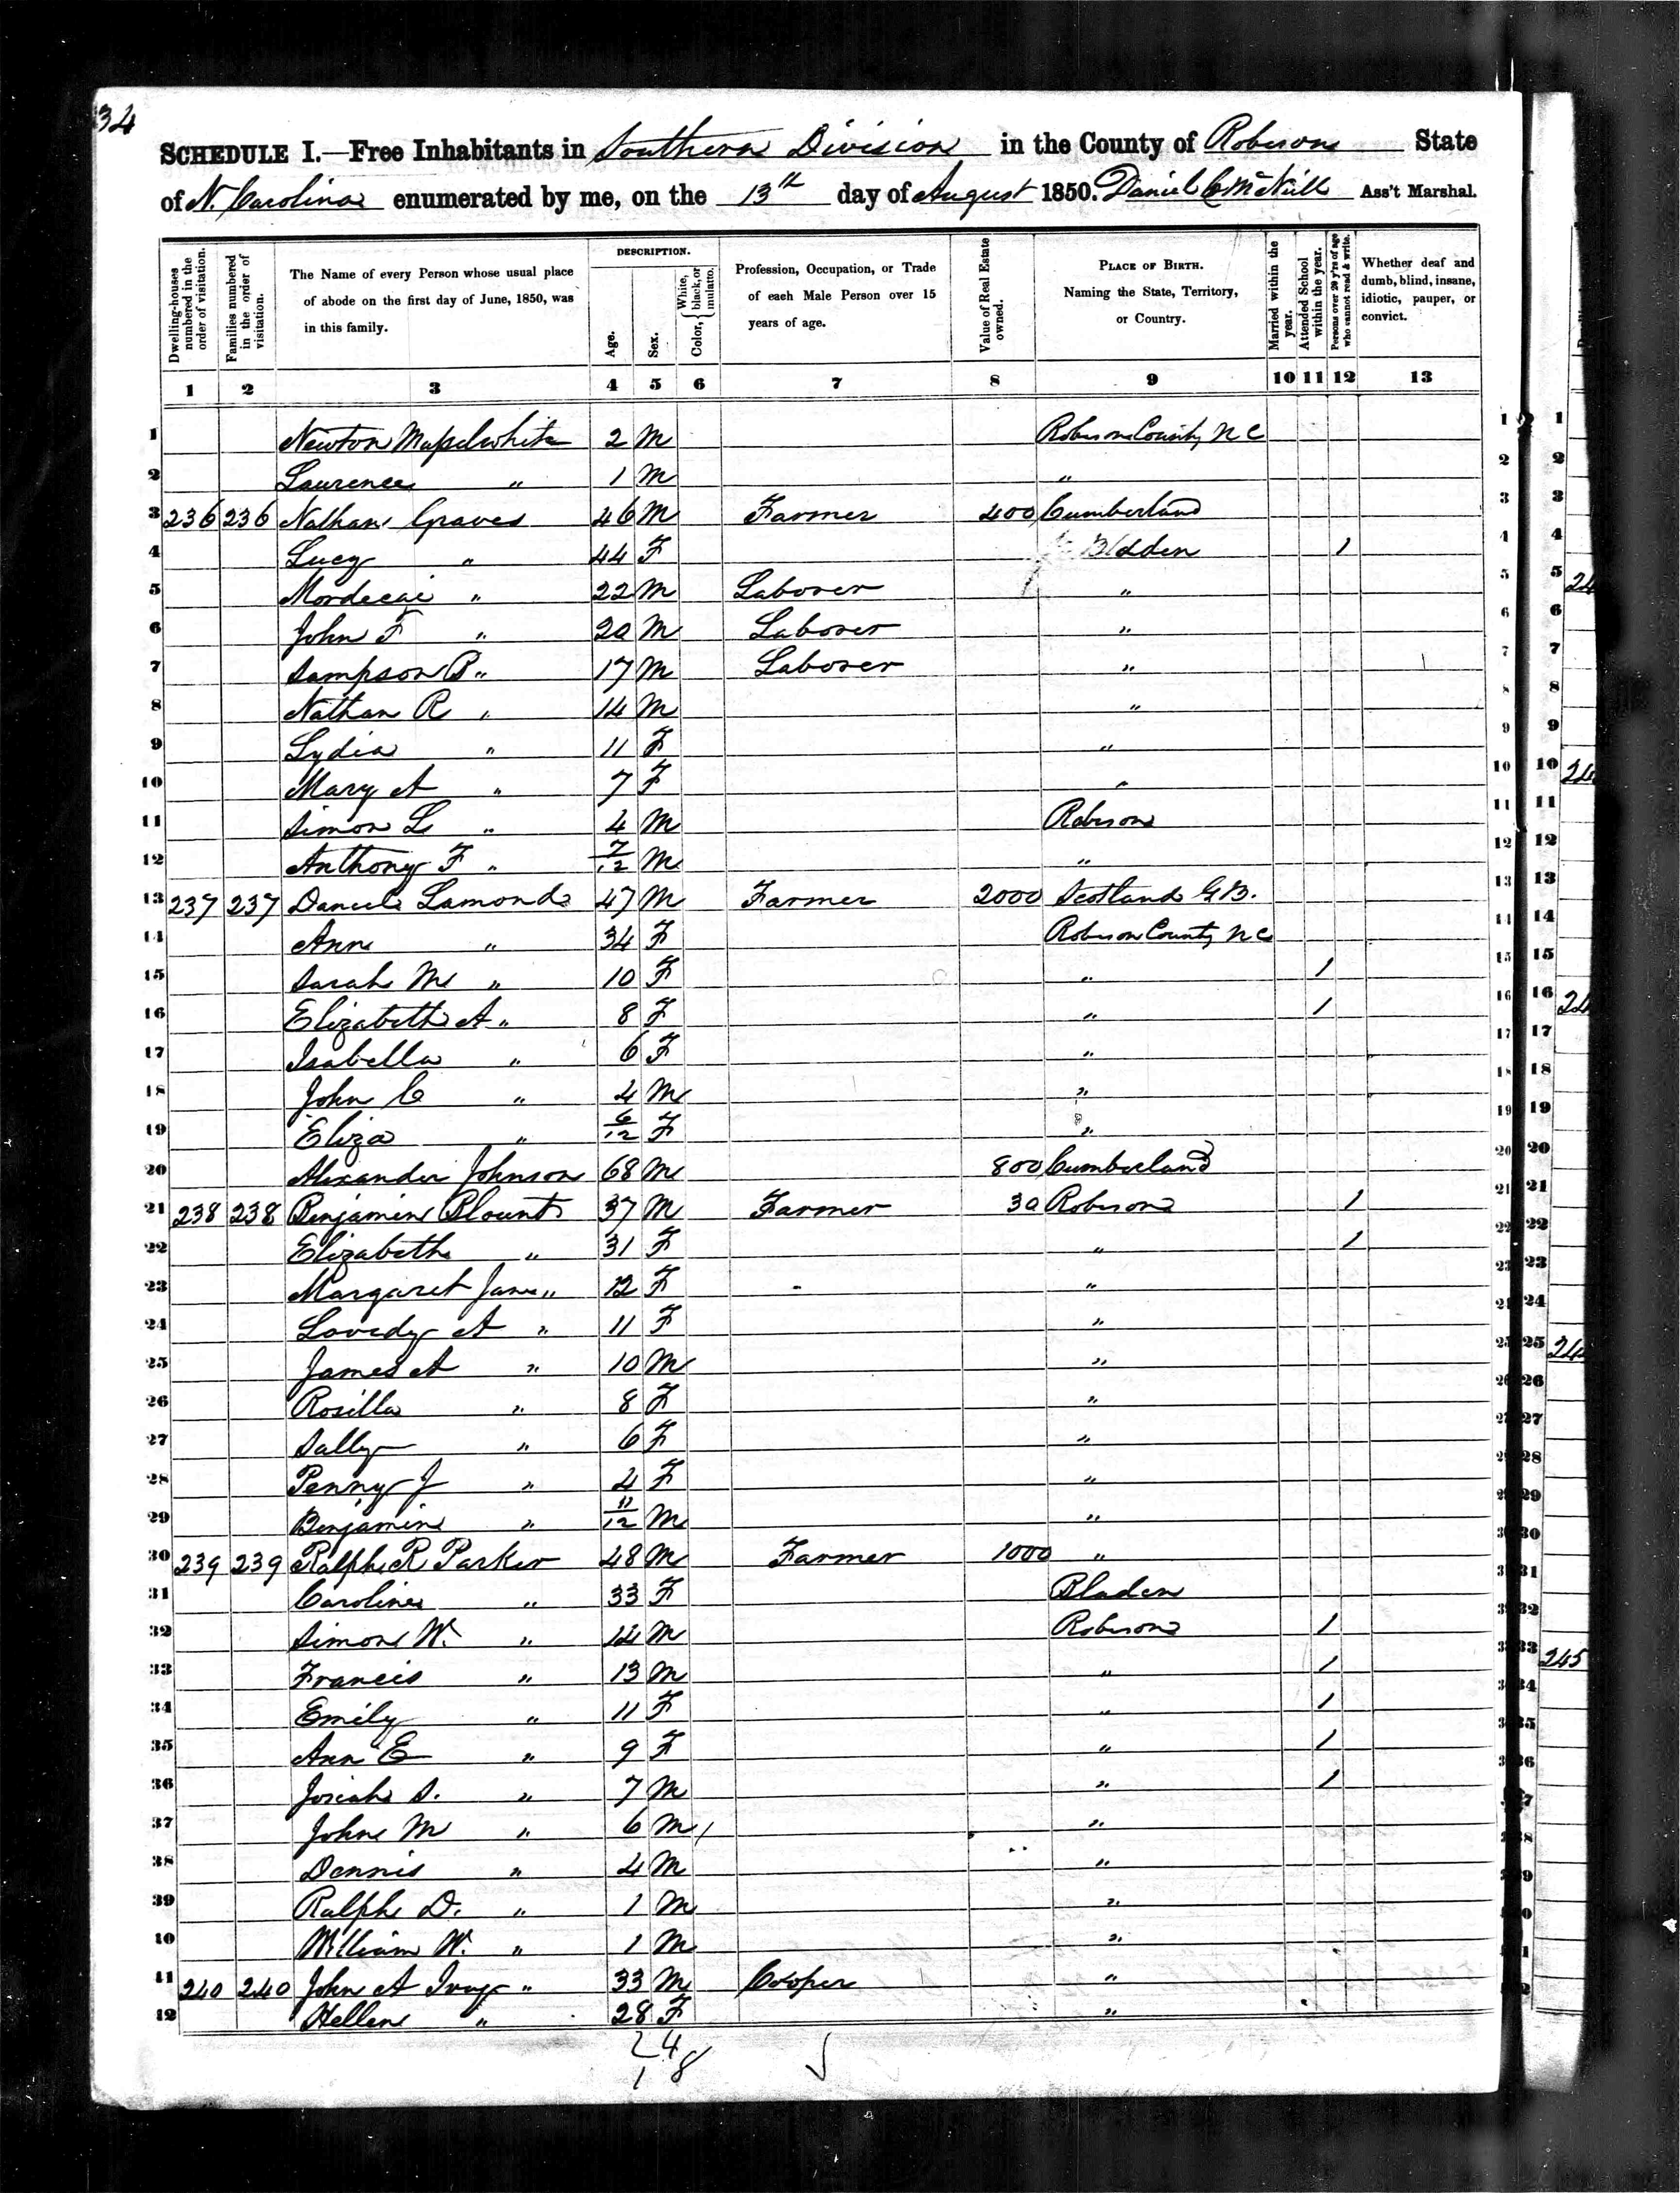 34
SCHEDULE I.—Free Inhabitants in Southern Division in the County of Robeson State
of N. Carolina enumerated by me, on the 13th day of August 1850. Daniel C McNeill Ass't Marshal.
Dwelling-houses numbered in the order of visitation.
Families numbered in the order of visitation.
The Name of every Person whose usual place of abode on the first day of June, 1850, was in this family.
DESCRIPTION.
Age.
Sex.
Color, { White, black, or mulatto.
Profession, Occupation, or Trade of each Male Person over 15 years of age.
Value of Real Estate owned.
PLACE OF BIRTH. Naming the State, Territory, or Country.
Married within the year.
Attended School within the year.
Persons over 20 y'rs of age who cannot read & write.
Whether deaf and dumb, blind, insane, idiotic, pauper, or convict.
1 2 3 4 5 6 7 8 9 10 11 12 13
1 Newton 2 M Robeson County N C 1
2 Laurence " 1 M " 2
3 236 236 Nathan Graves 46 M Farmer 400 Cumberland 3
4 Lucy " 44 F Bladen 1 4
5 Mordecai " 22 M Laborer " 5
6 John F " 20 M Laborer " 6
7 Sampson B " 17 M Laborer " 7
8 Nathan R " 14 M " 8
9 Lydia " 11 F " 9
10 Mary A " 7 F " 10
11 Simon L " 4 M Robeson 11
12 Anthony F " 7/12 M " 12
13 237 237 Daniel Lamond 47 M Farmer 2000 Scotland G.B. 13
14 Ann " 34 F Robeson County N C 14
15 Sarah M " 10 F " 1 15
16 Elizabeth A " 8 F " 1 16
17 Isabella " 6 F " 17
18 John C " 4 M " 18
19 Eliza " 6/12 F " 19
20 Alexander Johnson 68 M 800 Cumberland 20
21 238 238 Benjamin Blount 37 M Farmer 30 Robeson 1 21
22 Elizabeth " 31 F " 1 22
23 Margaret Jane " 12 F " 23
24 Lovedy A " 11 F " 24
25 James A " 10 M " 25
26 Rosilla " 8 F " 26
27 Sally " 6 F " 27
28 Penny J " 4 F " 28
29 Benjamin " 11/12 M " 29
30 239 239 Ralph R Parker 48 M Farmer 1000 " 30
31 Caroline " 33 F Bladen 31
32 Simon W. " 14 M Robeson 1 32
33 Francis " 13 M " 1 33
34 Emily " 11 F " 1 34
35 Ann E " 9 F " 1 35
36 Josiah S. " 7 M " 1 36
37 John M " 6 M "
38 Dennis " 4 M "
39 Ralph D. " 1 M "
40 William W. " 1 M "
41 240 240 John A Ivey " 33 M Cooper "
42 Hellen " 28 F "
24
18
245